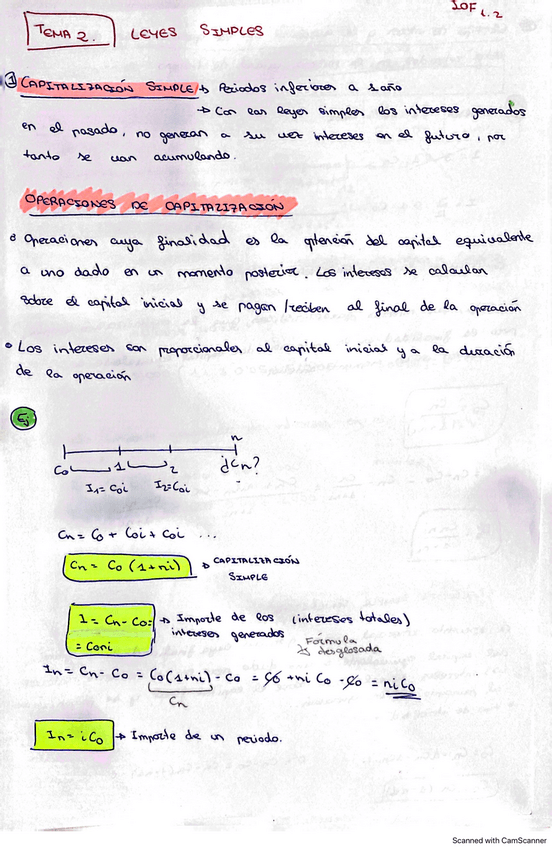 IOF 1.2
TEMA 2. LEYES SIMPLES
① CAPITALIZACIÓN SIMPLE → Periodos inferiores a 1 año
→ Con las leyes simples los intereses generados
en el pasado, no generan a su vez intereses en el futuro, por
tanto se van acumulando.
OPERACIONES DE CAPITALIZACIÓN
• Operaciones cuya finalidad es la obtención del capital equivalente
a uno dado en un momento posterior. Los intereses se calculan
sobre el capital inicial y se pagan/reciben al final de la operación
• Los intereses son proporcionales al capital inicial y a la duración
de la operación
Ej
n
C0 1 2 ¿Cn?
I1 = C0i I2 = C0i
Cn = C0 + C0i + C0i ...
Cn = C0 (1+ni) → CAPITALIZACIÓN
SIMPLE
I = Cn - C0 = → Importe de los (intereses totales)
= C0ni intereses generados
Fórmula
desglosada
In = Cn - C0 = C0(1+ni) - C0 = C0 + ni C0 - C0 = ni C0
Cn
In = i C0 → Importe de un periodo.
Scanned with CamScanner